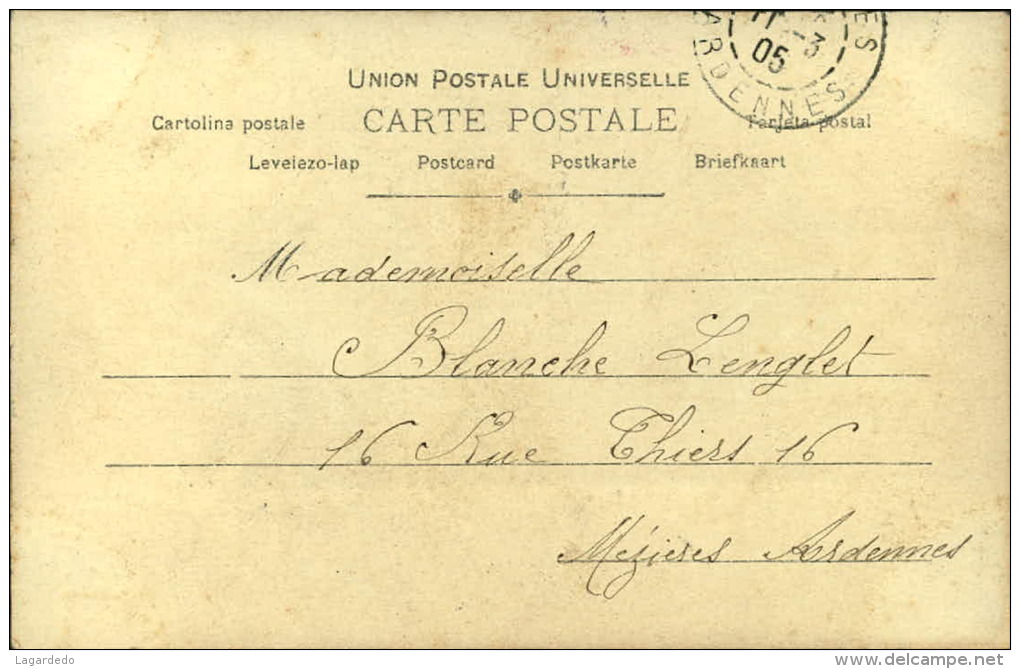 UNION POSTALE UNIVERSELLE
Cartolina postale CARTE POSTALE Tarjeta postal
Levelezo-lap Postcard Postkarte Briefkaart
11 -3
05
ARDENNES
Mademoiselle
Blanche Lenglet
16 Rue Thiers 16
Mézieres Ardennes
Lagardedo
delcampe.net